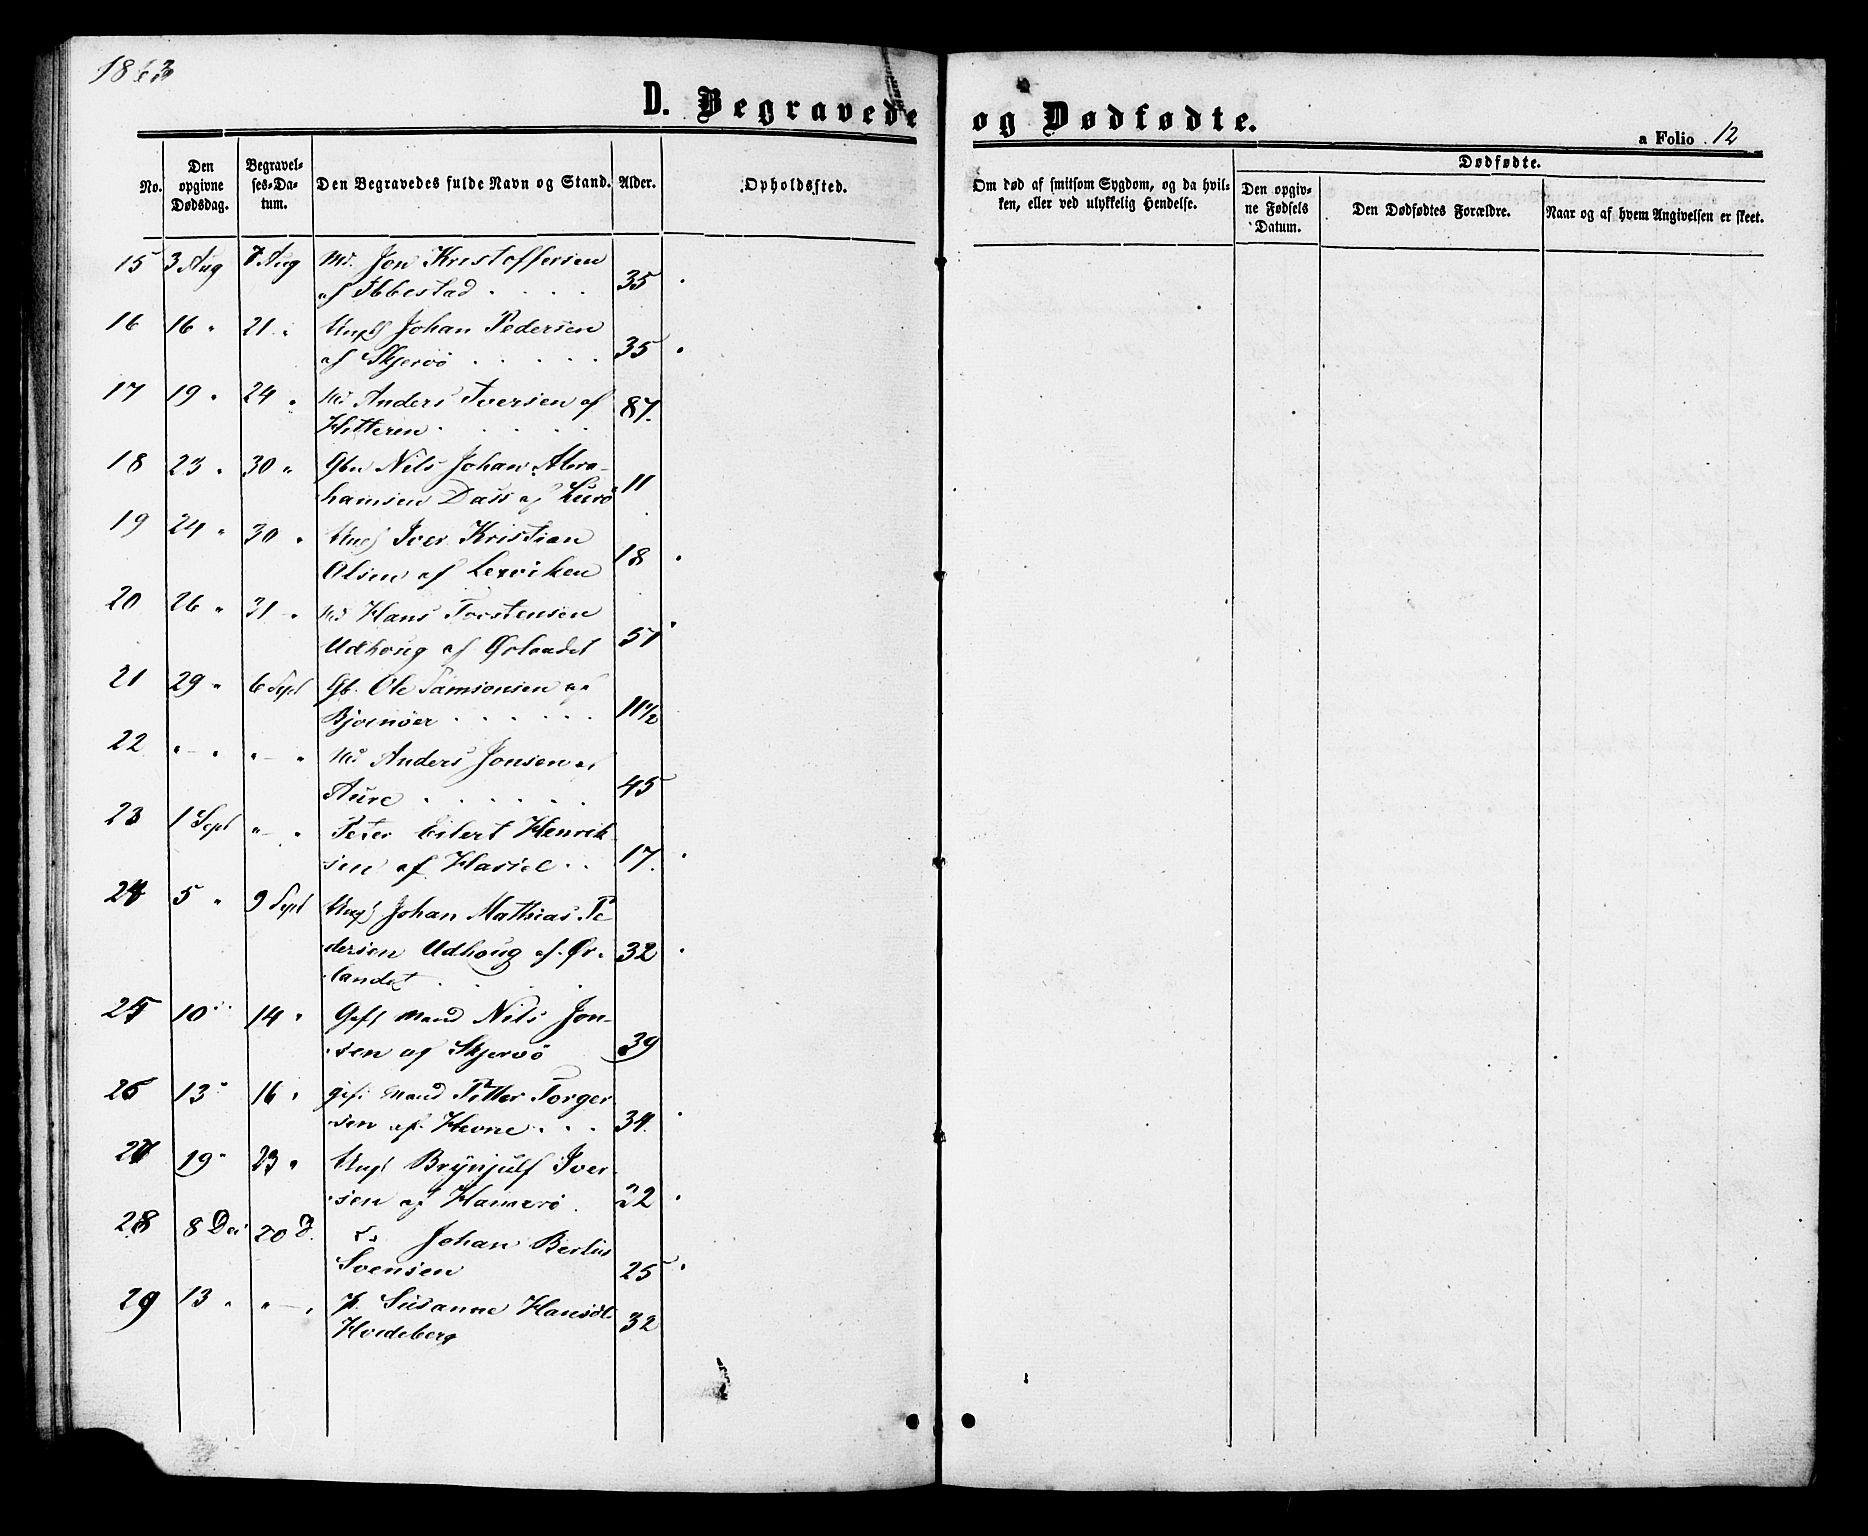 1863
D. Begravede og Dødfødte.
a Folio 12
No.
Den opgivne Dødsdag.
Begravelses-Datum.
Den Begravedes fulde Navn og Stand.
Alder.
Opholdssted.
Om død af smitsom Sygdom, og da hvilken, eller ved ulykkelig Hendelse.
Dødfødte.
Den opgivne Fødsels Datum.
Den Dødfødtes Forældre.
Naar og af hvem Angivelsen er skeet.
15 3 Aug 7 Aug Md. Jon Kristoffersen
af Ibbestad . . . . 35
16 16 " 21 " Ungk Johan Pedersen
af Skjervö . . . . . 35
17 19 " 24 " Md Anders Iversen af
Hitteren . . . . . 87.
18 23 " 30 " Gbn Nils Johan Abra-
hamsen Dass af Lurö 11
19 24 " 30 " Ungk Iver Kristian
Olsen af Lerviken 18
20 26 " 31 - " Md Hans Torstensen
Udhoug af Ørlandet 51
21 29 " 6 Sept Gb. Ole Samsonsen af
Bjørnöer . . . . . . 11 1/2
22 " - " " - " Md Anders Jonsen af
Aure . . . . . . 45
23 1 Sept " - " Peter Eilert Henrik-
sen af Hassel . . 17.
24 5 " 9 Sept Ungk Johan Mathias Pe
dersen Udhoug af Ør-
landet . . . . 32
25 10 " 14 " Gift Mand Nils Jon-
sen af Skjervö 39
26 13 " 16 " gift Mand Petter Torger
sen af Hevne . . . 34.
27 19 " 23 " Ungk Brynjulf Iver-
sen af Hamerö . 22
28 8 Dec 20 D. Do Johan Berlius
Svensen 25
29 13 " " - " P. Susanne Hansdt.
Hvedeberg 32